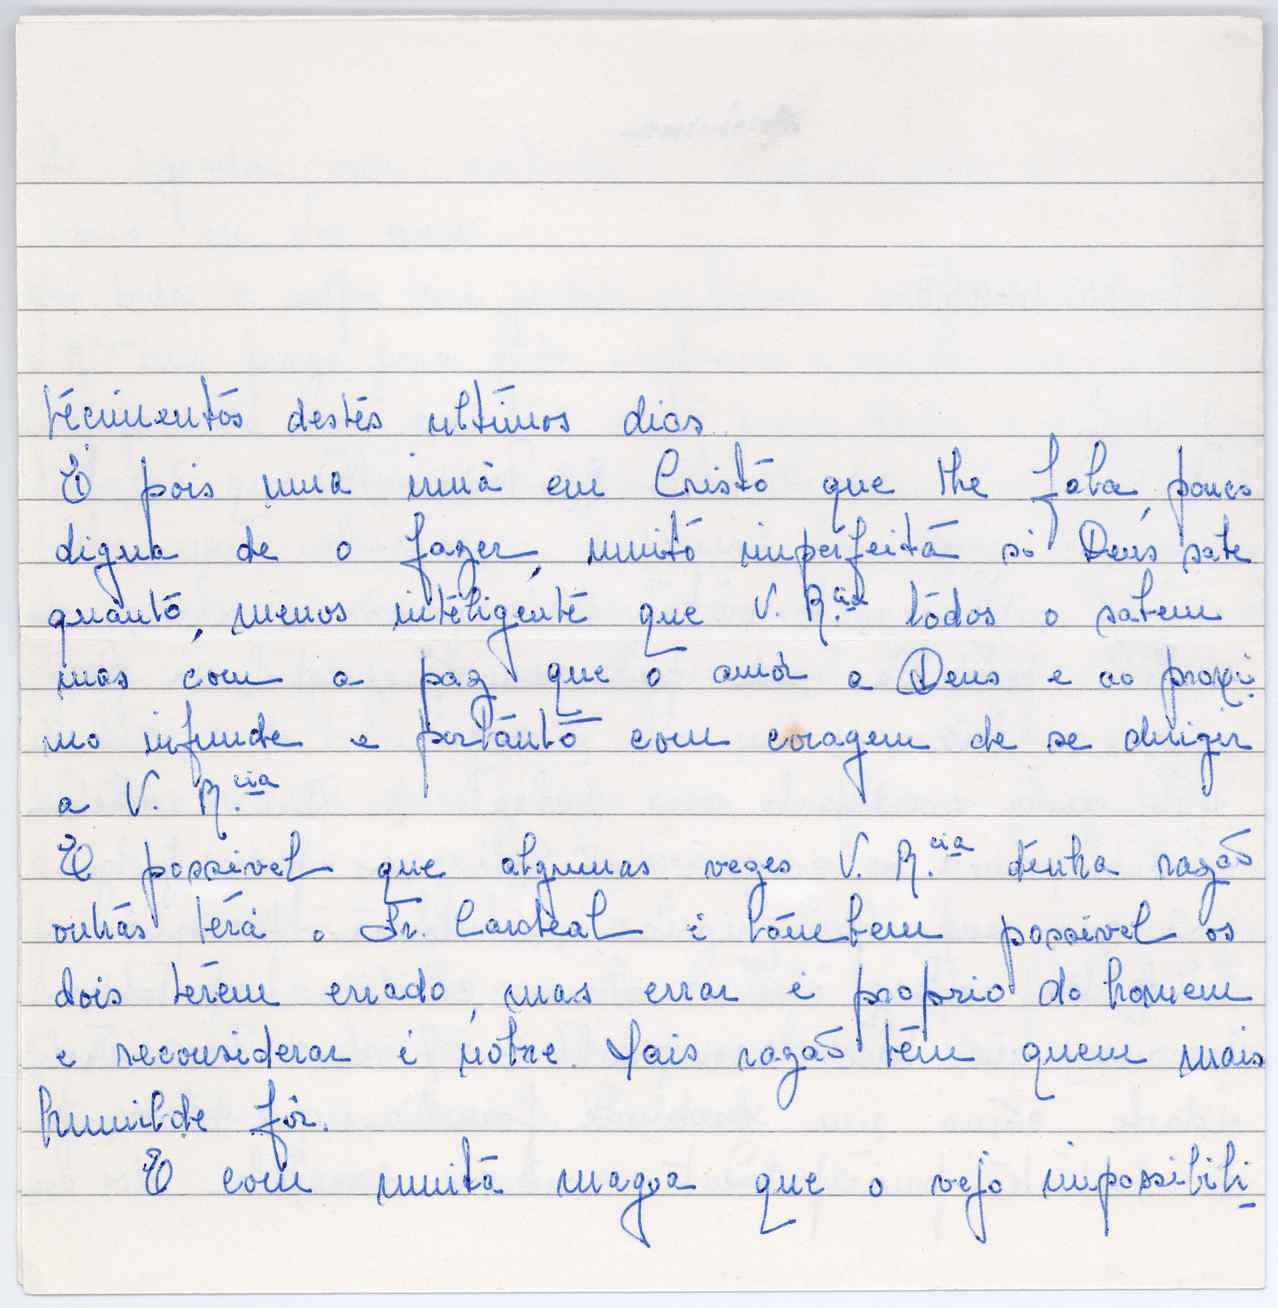 tecimentos destes ultimos dias.
É pois uma irmã em Cristo que lhe fala, pouco
digna de o fazer, muito imperfeita só Deus sabe
quanto, menos inteligente que V. R.cia todos o sabem
mas com a paz que o amor a Deus e ao proxi-
mo infunde e portanto com coragem de se dirigir
a V. R.cia
É possivel que algumas vezes V. R.cia tenha razão
outras terá o Sr. Cardeal é tambem possivel os
dois terem errado, mas errar é proprio do homem
e reconsiderar é nobre. Mais razão têm quem mais
humilde fôr.
É com muita magoa que o vejo impossibili-